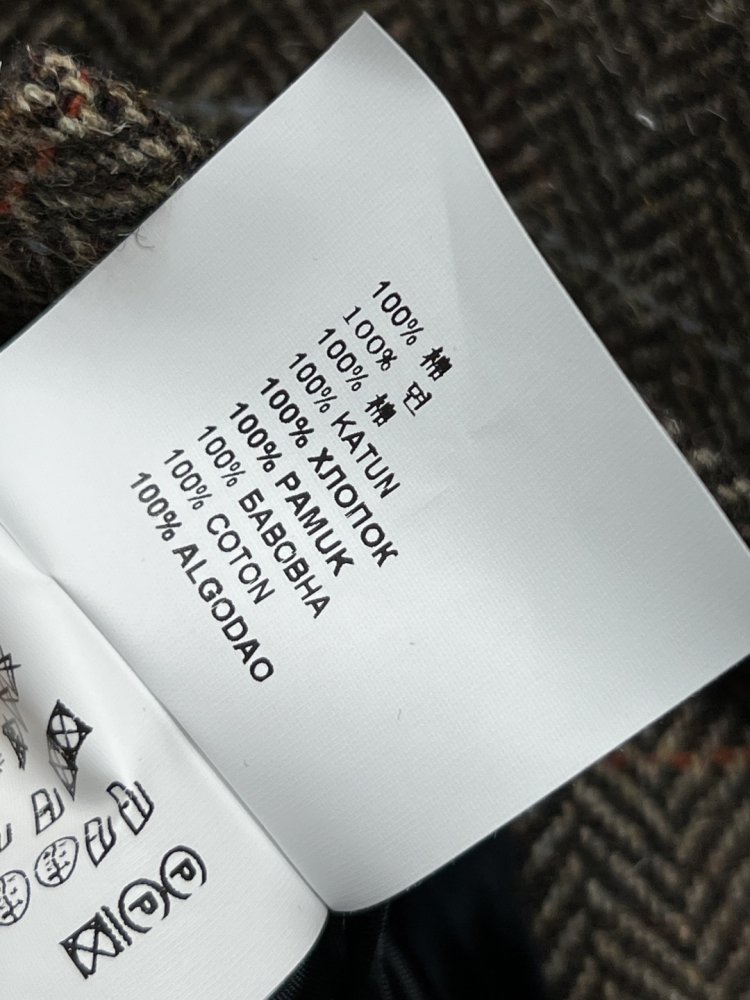 100% 棉
100% 면
100% 棉
100% KATUN
100% ХЛОПОК
100% PAMUK
100% БАВОВНА
100% COTON
100% ALGODAO
P P